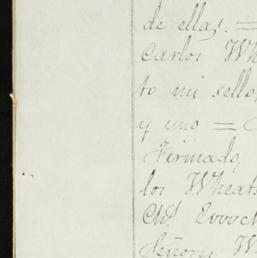 de ellas. =
Carlos Wh
to mi sello,
y uno =
Firmado,
los Wheat
Señores W